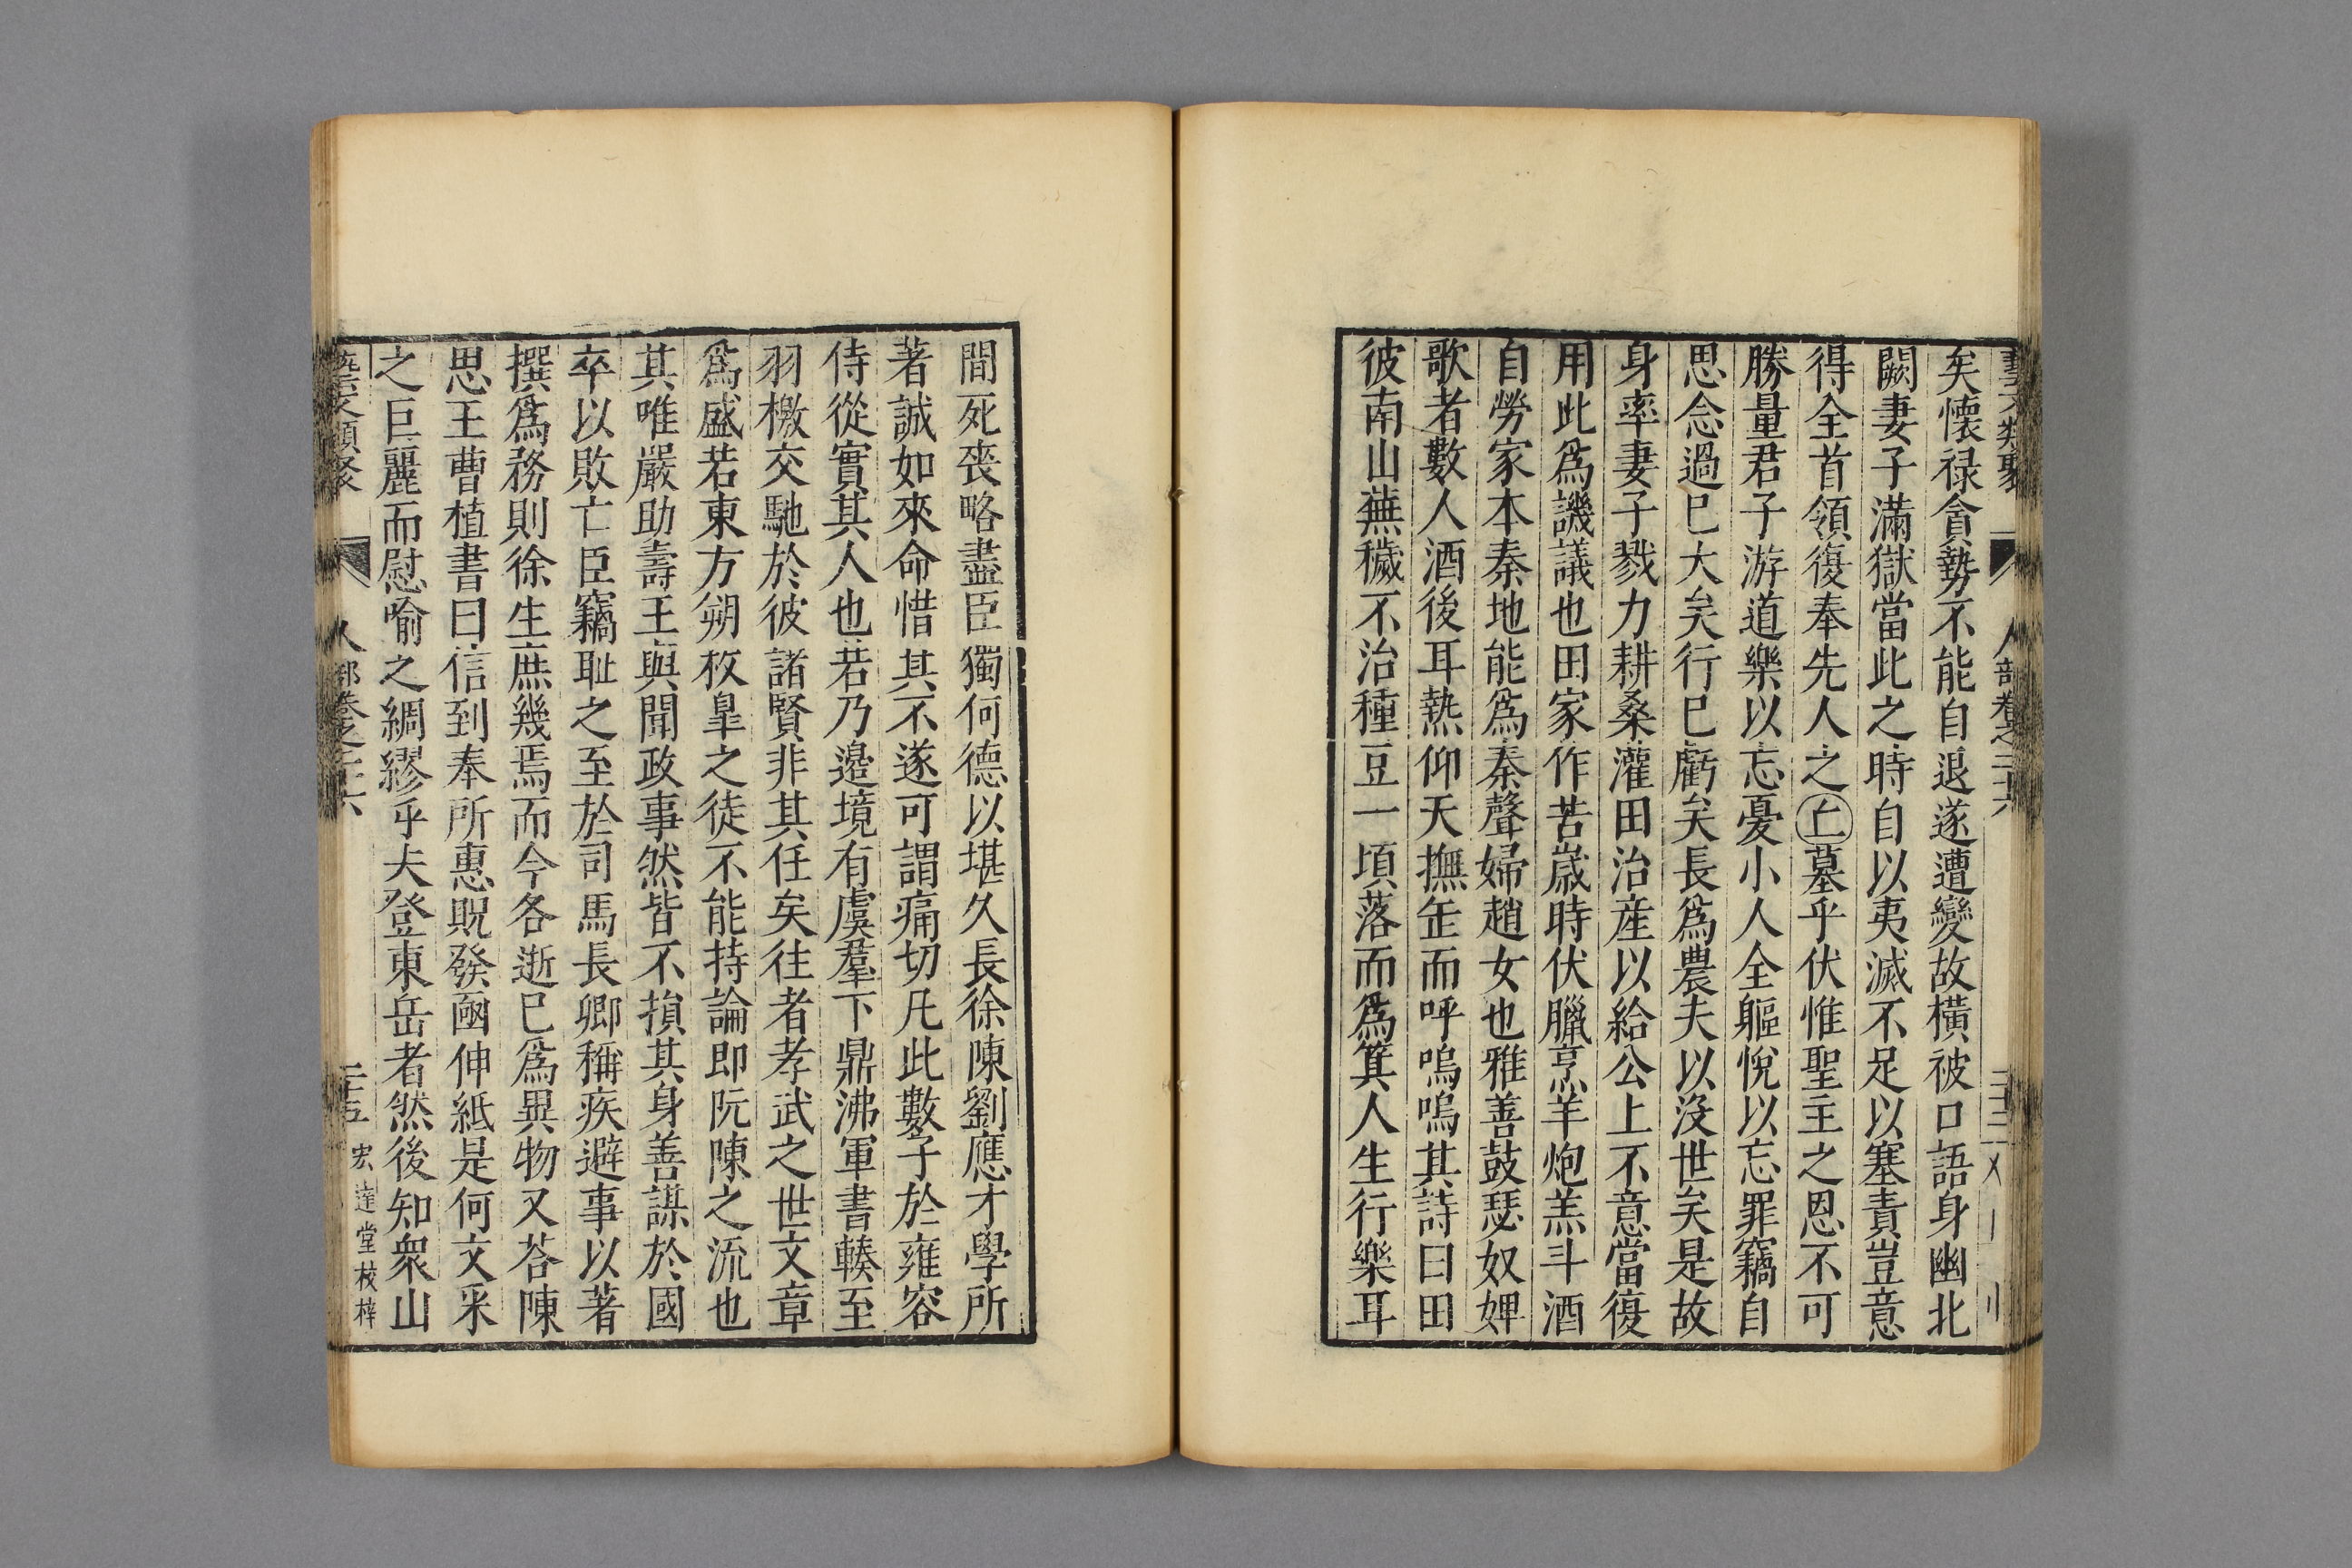 藝文類聚 人部卷之二十六
矣懷禄貪勢不能自退遂遭變故橫被口語身幽北
闕妻子滿獄當此之時自以夷滅不足以塞責豈意
得全首領復奉先人之丘墓乎伏惟聖主之恩不可
勝量君子游道樂以忘憂小人全軀悅以忘罪竊自
思念過已大矣行已虧矣長爲農夫以沒世矣是故
身率妻子戮力耕桑灌田治産以給公上不意當復
用此爲譏議也田家作苦歲時伏臘烹羊炮羔斗酒
自勞家本秦地能爲秦聲婦趙女也雅善鼓瑟奴婢
歌者數人酒後耳熱仰天撫缶而呼嗚嗚其詩曰田
彼南山蕪穢不治種豆一頃落而爲箕人生行樂耳
間死喪略盡臣獨何德以堪久長徐陳劉應才學所
著誠如來命惜其不遂可謂痛切凡此數子於雍容
侍從實其人也若乃邉境有虞羣下鼎沸軍書輳至
羽檄交馳於彼諸賢非其任矣往者孝武之世文章
爲盛若東方朔枚皐之徒不能持論即阮陳之流也
其唯嚴助壽王與聞政事然皆不損其身善謀於國
卒以敗亡臣竊耻之至於司馬長卿稱疾避事以著
撰爲務則徐生庶幾焉而今各逝已爲異物又荅陳
思王曹植書曰信到奉所惠貺發函伸紙是何文采
之巨麗而慰喻之綢繆乎夫登東岳者然後知衆山
藝文類聚 人部卷之二十六 二十五 宏達堂校梓